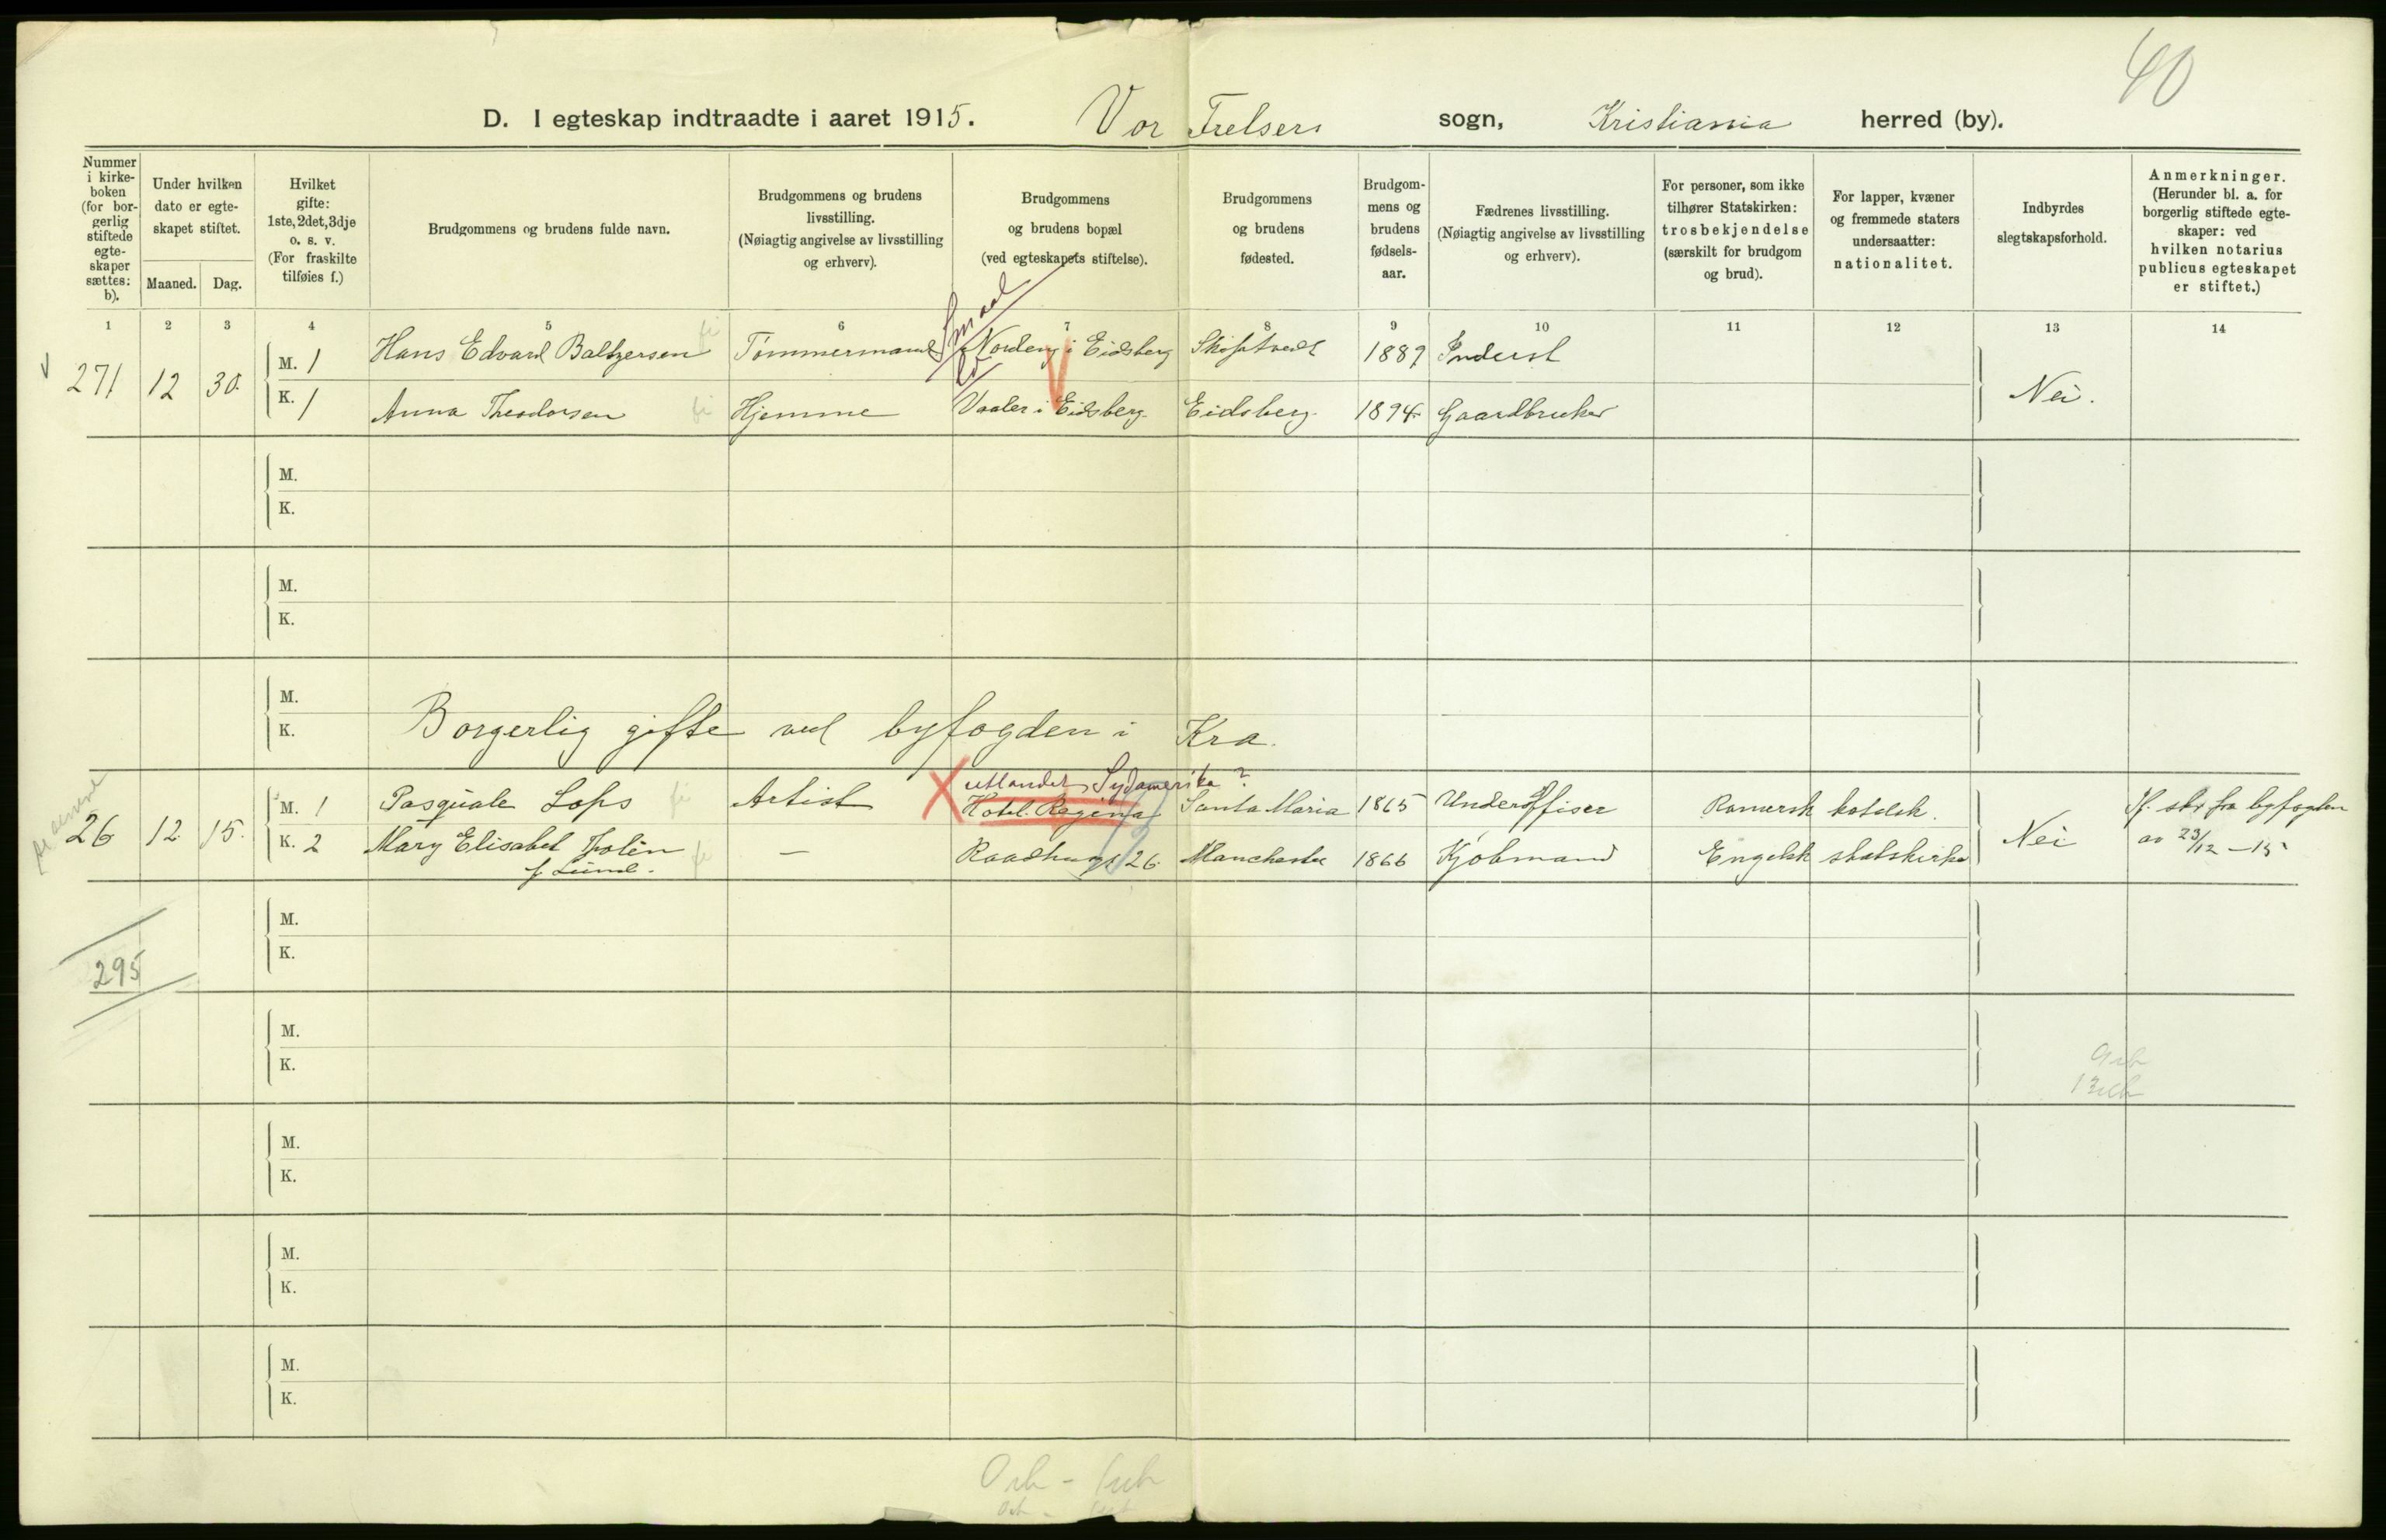 40
D. I egteskap indtraadte i aaret 1915. Vor Frelsers sogn, Kristiania herred (by).
Nummer i kirkeboken (for borgerlig stiftede egteskaper sættes: b).
Under hvilken dato er egteskapet stiftet.
Maaned. Dag.
Hvilket gifte: 1ste, 2det, 3dje o. s. v. (For fraskilte tilføies f.)
Brudgommens og brudens fulde navn.
Brudgommens og brudens livsstilling. (Nøiagtig angivelse av livsstilling og erhverv).
Brudgommens og brudens bopæl (ved egteskapets stiftelse).
Brudgommens og brudens fødested.
Brudgommens og brudens fødselsaar.
Fædrenes livsstilling. (Nøiagtig angivelse av livsstilling og erhverv).
For personer, som ikke tilhører Statskirken: trosbekjendelse (særskilt for brudgom og brud).
For lapper, kvæner og fremmede staters undersaatter: nationalitet.
Indbyrdes slegtskapsforhold.
Anmerkninger. (Herunder bl. a. for borgerlig stiftede egteskaper: ved hvilken notarius publicus egteskapet er stiftet.)
1 2 3 4 5 6 7 8 9 10 11 12 13 14
Smaal
271 12 30. M. 1 Hans Edvard Baltzersen Tömmermand Nordeng i Eidsberg Skiptvedt 1889 Inderst
K. 1 Anna Theodorsen Hjemme Vaaler i Eidsberg. Eidsberg. 1894 Gaardbruker Nei.
M.
K.
M.
K.
M.
K. Borgerlig gifte ved byfogden i Kra.
utlandet, Sydamerika?
26 12. 15. M. 1 Pasquale Lops Artist Hotel Regina Santa Maria 1865 Underoffiser Romersk katolsk. Jf. skr fra byfogden
K. 2 Mary Elisabet Tolén — Raadhusgt 26. Manchester 1866 Kjöbmand Engelsk statskirke Nei av 23/12 – 15
f. Lund.
M.
K.
295
M.
K.
M.
K.
M.
K.
M.
K.